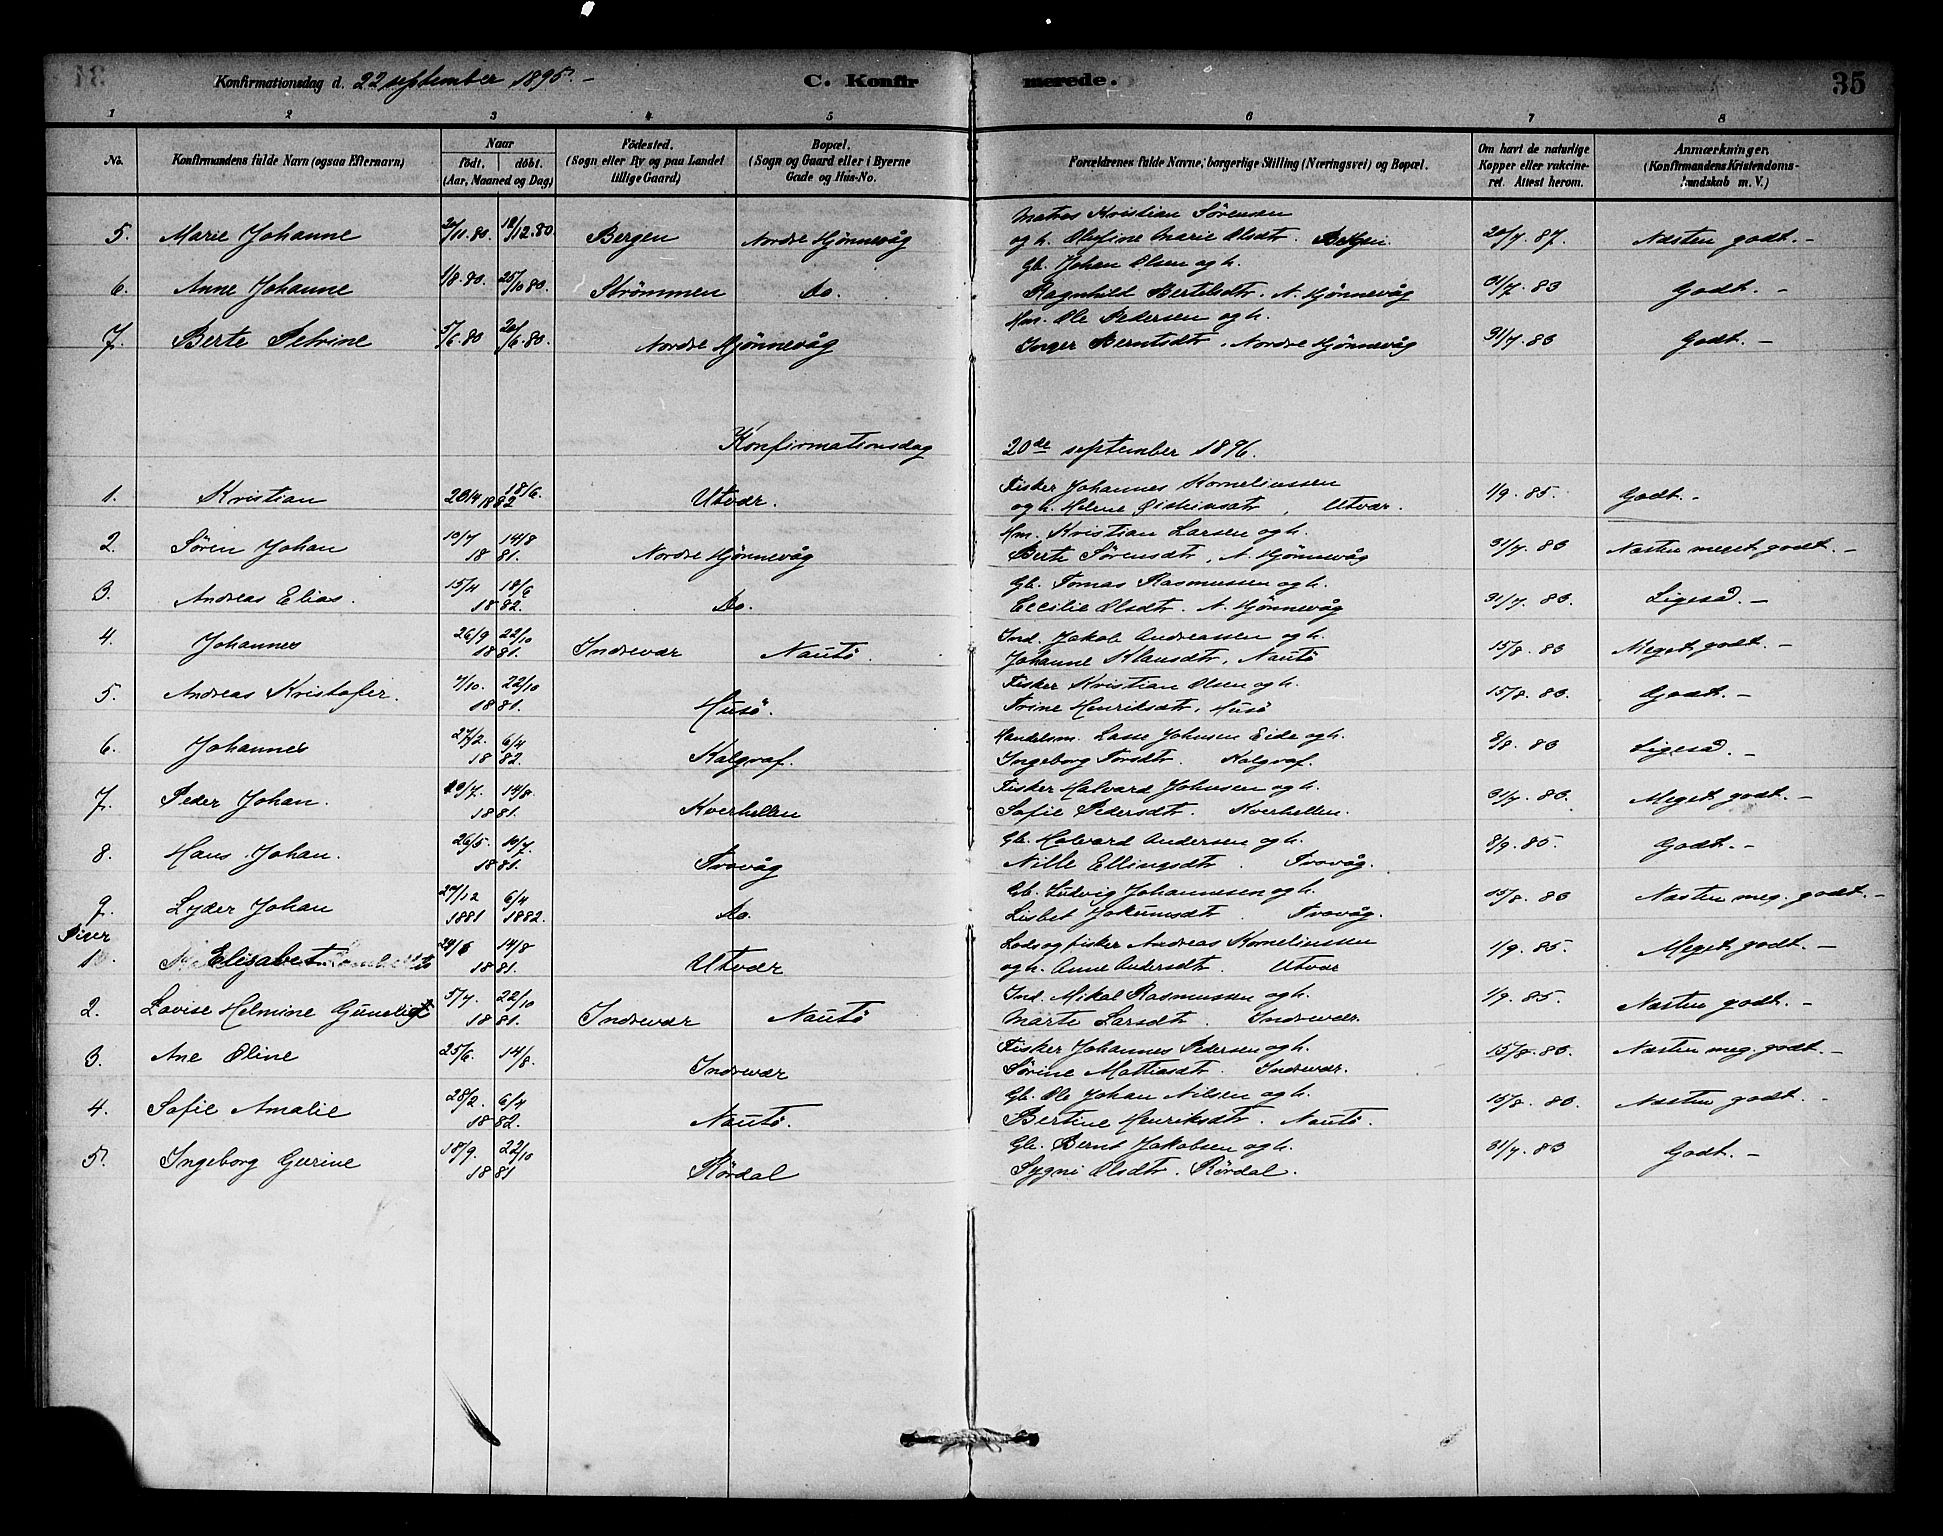 Konfirmationsdag d. 22 september 1895. –
C. Konfirmerede.
35
1 2 3 4 5 6 7 8
No. Konfirmandens fulde Navn (ogsaa Efternavn) Naar födt, döbt. (Aar, Maaned og Dag) Födested. (Sogn eller By og paa Landet tillige Gaard) Bopæl. (Sogn og Gaard eller i Byerne Gade og Hus-No. Forældrenes fulde Navne, borgerlige Stilling (Næringsvei) og Bopæl. Om havt de naturlige Kopper eller vakcineret. Attest herom. Anmærkninger. (Konfirmandens Kristendomskundskab m. V.)
Matros Kristian Sørensen
5. Marie Johanne 2/11.80. 12/12.80 Bergen Nordre Hjønnevåg og h. Olufine Marie Olsdtr. Bergen 20/7. 87. Næsten godt. –
Gb. Johan Olsen og h.
6. Anne Johanne 1/8.80. 25/10 80. Strømmen Do. Ragnhild Bertelsdtr. N. Hjønnevåg 31/7. 83 Godt. –
Hm. Ole Pedersen og h.
7. Berte Petrine 5/6.80 20/6.80. Nordre Hjønnevåg Inger Berntsdtr, Nordre Hjønnevåg 31/7 83 Godt. –
Konfirmationsdag 20de september 1896.
Fisker Johannes Korneliussen
1. Kristian 18/6. 1882 Utvær. og h. Helene, Utvær. 1/9. 85. Godt. –
10/7 14/8 Hm. Kristian Larsen og h.
2. Søren Johan 18 81. Nordre Hjønnevåg Berte Sørensdtr, N. Hjønnevåg 31/7. 83 Næsten meget godt. –
15/4 18/6 Gb. Tomas Rasmussen og h.
3. Andreas Elias. 18 82. Do. Cecilie Olsdtr. N. Hjønnevåg 31/7. 83. Ligeså. –
26/9 22/10 Ind. Jakob Andreassen og h.
4. Johannes 18 81. Indrevær Nautø. Johanne Klausdtr, Nautø 15/8. 83 Meget godt. –
7/10. 22/10 Fisker Kristian Olsen og h.
5. Andreas Kristofer. 18 81. Husø. Trine Henriksdtr, Husø 15/8. 83. Godt. –
27/2. 6/4 Handelsm. Lasse Johnsen Eide og h.
6. Johannes 18 82. Kalgraf. Ingeborg Torsdtr. Kalgraf. 8/8. 83 Ligeså. –
14/8. Fisker Halvard Johnsen og h.
7. Peder Johan. 18 81. Kverhellen Sofie Pedersdtr. Kverhellen. 31/7. 83. Meget godt. –
26/5. 10/7. Gb. Halvard Andersen og h.
8. Hans Johan. 18 81. Trovåg Nille Ellingsdtr. Trovåg. 8/9. 85. Godt. –
6/4 Gb. Ludvig Johannesen og h.
9. Lyder Johan 1881 1882. Do. Lisbet Jokumsdtr. Trovåg. 15/8. 83 Næsten meg. godt. –
Piger 14/8 Andreas Korneliussen
1. Elisabet 18 81. Utvær og h. Anne Andersdtr. Utvær 1/9. 85. Meget godt. –
5/7. 22/10 Ind. Mikal Rasmussen og h.
2. Lovise Helmine 18 81. Indrevær Nautø Marte Larsdtr. Indrevær. 1/9. 85. Næsten godt. –
Fisker Johannes Pedersen og h.
3. Ane Oline 25/6. 14/8. Indrevær Sørine Mattiasdtr. Indrevær. 15/8. 83. Næsten meg. godt. –
28/2. 6/4 Gb. Ole Johan Nilsen og h.
4. Sofie Amalie 18 82. Nautø. Bertine Henriksdtr. Nautø. 15/8. 83. Næsten godt. –
18/9. 22/10 Gb. Bernt Jakobsen og h.
5. Ingeborg Gurine 18 81 Rørdal Sygni Olsdtr. Rørdal. 31/7. 83 Godt. –